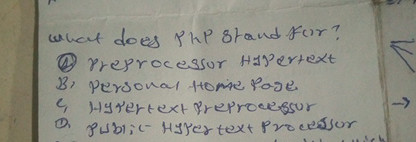 What does PhP Stand For?
A) Preprocessor Hypertext
B, Personal Home Page
C, Hypertext Preprocessor
D. Public Hypertext Processor